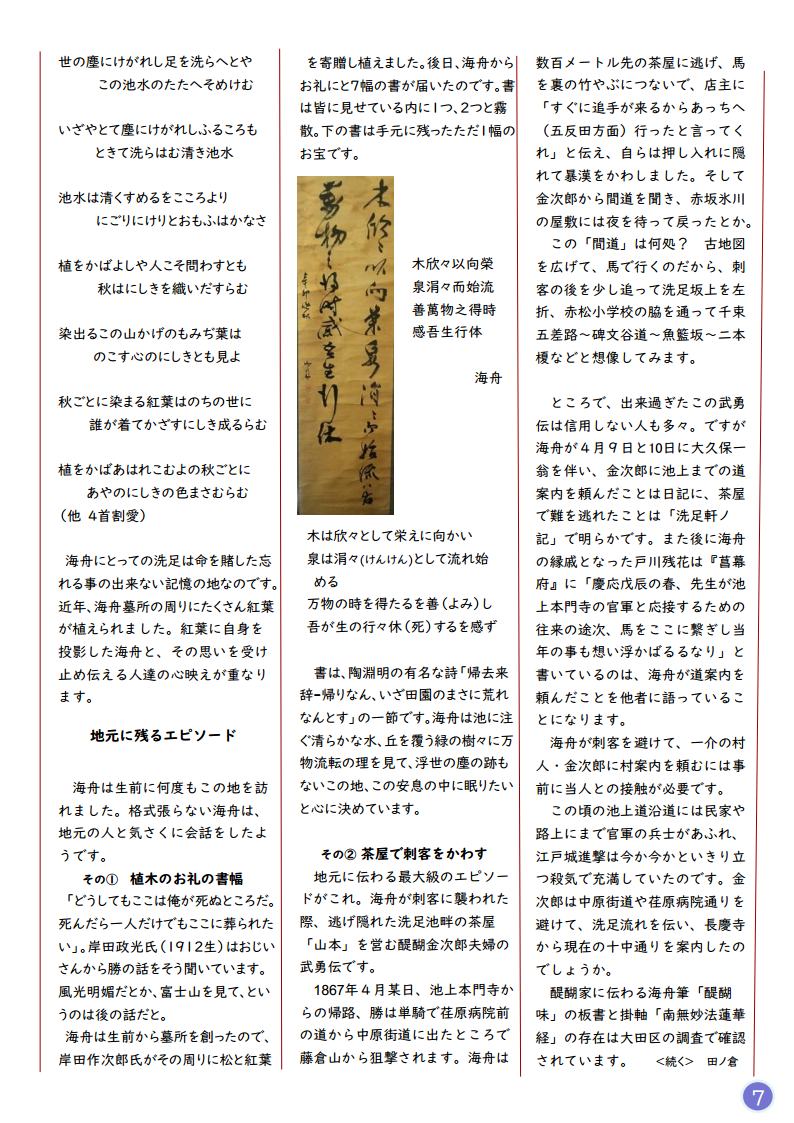 世の塵にけがれし足を洗らへとや
この池水のたたへそめけむ
いざやとて塵にけがれしふるころも
ときて洗らはむ清き池水
池水は清くすめるをこころより
にごりにけりとおもふはかなさ
植をかばよしや人こそ問わすとも
秋はにしきを織いだすらむ
染出るこの山かげのもみぢ葉は
のこす心のにしきとも見よ
秋ごとに染まる紅葉はのちの世に
誰が着てかざすにしき成るらむ
植をかばあはれこむよの秋ごとに
あやのにしきの色まさむらむ
（他 4首割愛）
海舟にとっての洗足は命を賭した忘
れる事の出来ない記憶の地なのです。
近年、海舟墓所の周りにたくさん紅葉
が植えられました。紅葉に自身を
投影した海舟と、その思いを受け
止め伝える人達の心映えが重なり
ます。
地元に残るエピソード
海舟は生前に何度もこの地を訪
れました。格式張らない海舟は、
地元の人と気さくに会話をしたよ
うです。
その① 植木のお礼の書幅
「どうしてもここは俺が死ぬところだ。
死んだら一人だけでもここに葬られた
い」。岸田政光氏（1912生）はおじい
さんから勝の話をそう聞いています。
風光明媚だとか、富士山を見て、とい
うのは後の話だと。
海舟は生前から墓所を創ったので、
岸田作次郎氏がその周りに松と紅葉
を寄贈し植えました。後日、海舟から
お礼にと7幅の書が届いたのです。書
は皆に見せている内に1つ、2つと霧
散。下の書は手元に残ったただ1幅の
お宝です。
木欣々以向榮
泉涓々而始流
善萬物之得時
感吾生行休
海舟
木は欣々として栄えに向かい
泉は涓々(けんけん)として流れ始
める
万物の時を得たるを善（よみ）し
吾が生の行々休（死）するを感ず
書は、陶淵明の有名な詩「帰去来
辞-帰りなん、いざ田園のまさに荒れ
なんとす」の一節です。海舟は池に注
ぐ清らかな水、丘を覆う緑の樹々に万
物流転の理を見て、浮世の塵の跡も
ないこの地、この安息の中に眠りたい
と心に決めています。
その② 茶屋で刺客をかわす
地元に伝わる最大級のエピソー
ドがこれ。海舟が刺客に襲われた
際、逃げ隠れた洗足池畔の茶屋
「山本」を営む醍醐金次郎夫婦の
武勇伝です。
1867年４月某日、池上本門寺か
らの帰路、勝は単騎で荏原病院前
の道から中原街道に出たところで
藤倉山から狙撃されます。海舟は
数百メートル先の茶屋に逃げ、馬
を裏の竹やぶにつないで、店主に
「すぐに追手が来るからあっちへ
（五反田方面）行ったと言ってく
れ」と伝え、自らは押し入れに隠
れて暴漢をかわしました。そして
金次郎から間道を聞き、赤坂氷川
の屋敷には夜を待って戻ったとか。
この「間道」は何処？ 古地図
を広げて、馬で行くのだから、刺
客の後を少し追って洗足坂上を左
折、赤松小学校の脇を通って千束
五差路～碑文谷道～魚籃坂～二本
榎などと想像してみます。
ところで、出来過ぎたこの武勇
伝は信用しない人も多々。ですが
海舟が４月９日と10日に大久保一
翁を伴い、金次郎に池上までの道
案内を頼んだことは日記に、茶屋
で難を逃れたことは「洗足軒ノ
記」で明らかです。また後に海舟
の縁戚となった戸川残花は『菖幕
府』に「慶応戊辰の春、先生が池
上本門寺の官軍と応接するための
往来の途次、馬をここに繋ぎし当
年の事も想い浮かばるるなり」と
書いているのは、海舟が道案内を
頼んだことを他者に語っているこ
とになります。
海舟が刺客を避けて、一介の村
人・金次郎に村案内を頼むには事
前に当人との接触が必要です。
この頃の池上道沿道には民家や
路上にまで官軍の兵士があふれ、
江戸城進撃は今か今かといきり立
つ殺気で充満していたのです。金
次郎は中原街道や荏原病院通りを
避けて、洗足流れを伝い、長慶寺
から現在の十中通りを案内したの
でしょうか。
醍醐家に伝わる海舟筆「醍醐
味」の板書と掛軸「南無妙法蓮華
経」の存在は大田区の調査で確認
されています。 <続く> 田ノ倉
7